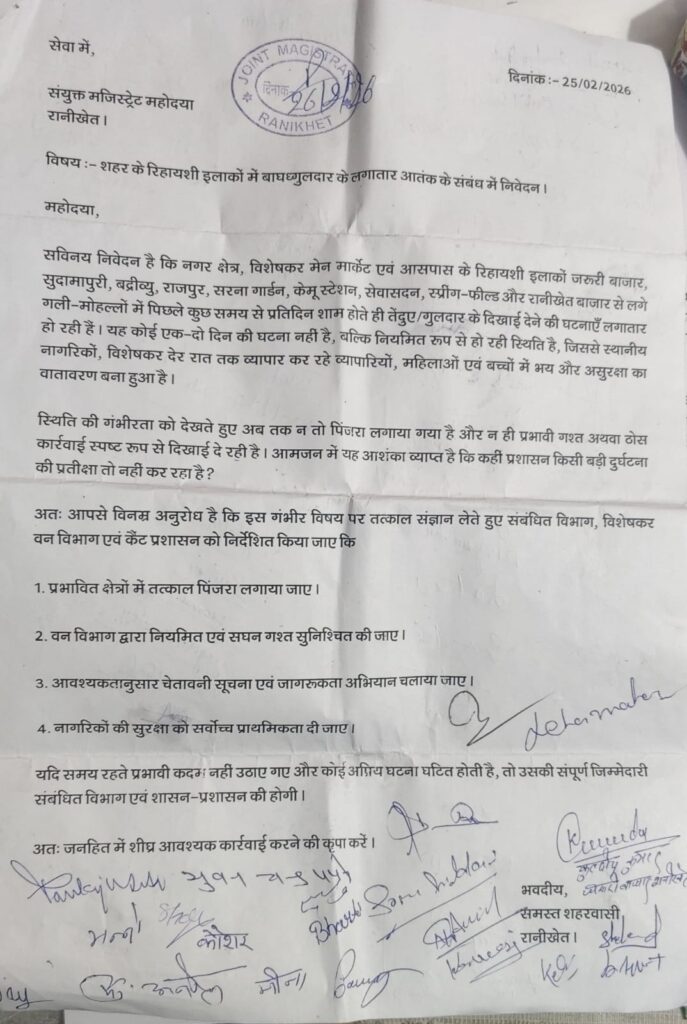 सेवा में,
JOINT MAGISTRATE
दिनांक
26/2/26
RANIKHET
दिनांक:- 25/02/2026
संयुक्त मजिस्ट्रेट महोदया
रानीखेत।
विषय :- शहर के रिहायशी इलाकों में बाघध्गुलदार के लगातार आतंक के संबंध में निवेदन।
महोदया,
सविनय निवेदन है कि नगर क्षेत्र, विशेषकर मेन मार्केट एवं आसपास के रिहायशी इलाकों जरुरी बाजार,
सुदामापुरी, बद्रीव्यु, राजपुर, सरना गार्डन, केमू स्टेशन, सेवासदन, स्प्रींग-फील्ड और रानीखेत बाजार से लगे
गली-मोहल्लों में पिछले कुछ समय से प्रतिदिन शाम होते ही तेंदुए/गुलदार के दिखाई देने की घटनाएँ लगातार
हो रही हैं। यह कोई एक-दो दिन की घटना नहीं है, बल्कि नियमित रूप से हो रही स्थिति है, जिससे स्थानीय
नागरिकों, विशेषकर देर रात तक व्यापार कर रहे व्यापारियों, महिलाओं एवं बच्चों में भय और असुरक्षा का
वातावरण बना हुआ है।
स्थिति की गंभीरता को देखते हुए अब तक न तो पिंजरा लगाया गया है और न ही प्रभावी गश्त अथवा ठोस
कार्रवाई स्पष्ट रूप से दिखाई दे रही है। आमजन में यह आशंका व्याप्त है कि कहीं प्रशासन किसी बड़ी दुर्घटना
की प्रतीक्षा तो नहीं कर रहा है?
अतः आपसे विनम्र अनुरोध है कि इस गंभीर विषय पर तत्काल संज्ञान लेते हुए संबंधित विभाग, विशेषकर
वन विभाग एवं कैंट प्रशासन को निर्देशित किया जाए कि
1. प्रभावित क्षेत्रों में तत्काल पिंजरा लगाया जाए।
2. वन विभाग द्वारा नियमित एवं सघन गश्त सुनिश्चित की जाए।
3. आवश्यकतानुसार चेतावनी सूचना एवं जागरूकता अभियान चलाया जाए।
4. नागरिकों की सुरक्षा को सर्वोच्च प्राथमिकता दी जाए।
यदि समय रहते प्रभावी कदम नहीं उठाए गए और कोई अप्रिय घटना घटित होती है, तो उसकी संपूर्ण जिम्मेदारी
संबंधित विभाग एवं शासन-प्रशासन की होगी।
अतः जनहित में शीघ्र आवश्यक कार्रवाई करने की कृपा करें।
भवदीय,
समस्त शहरवासी
रानीखेत।
कौशर
मीना